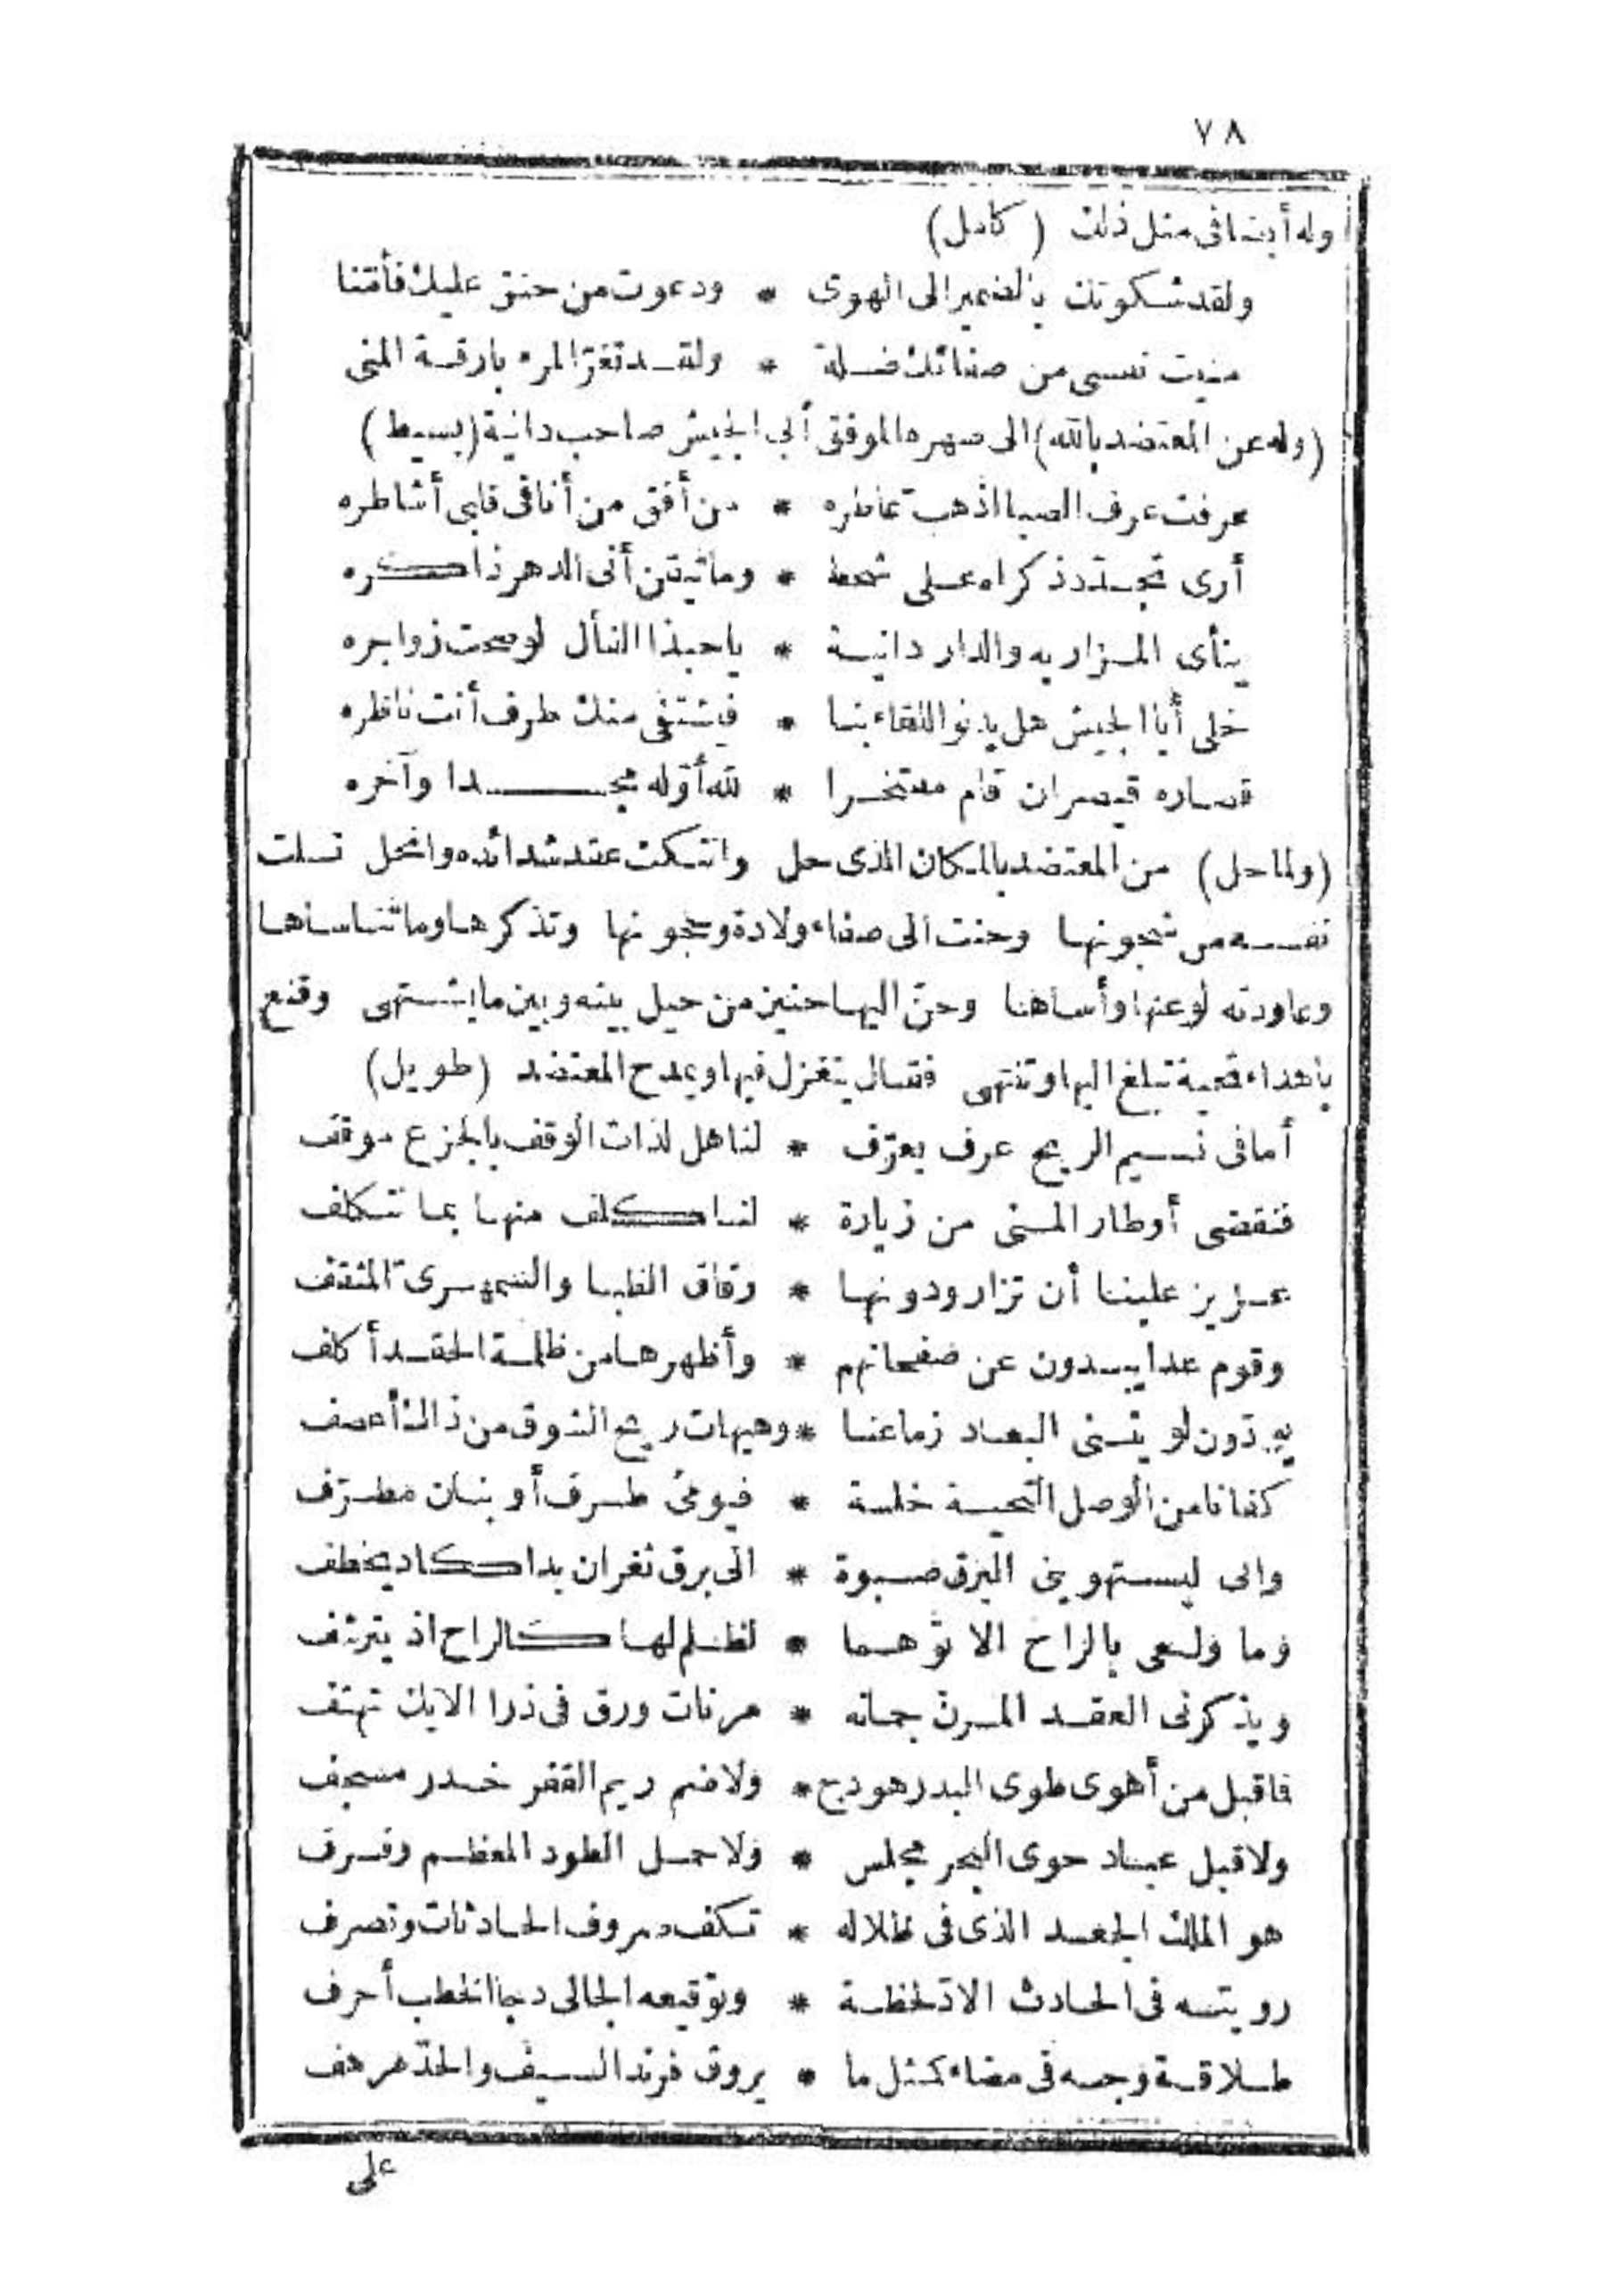 ٧٨
وله أيضا فى مثل ذلك (كامل)
ولقد شكوتك بالضمير الى الهوى * ودعوت من حنق عليك فأمّنا
منيت نفسى من صفائك ضلة * ولقد تغرّ المرء بارقة المنى
(وله عن المعتضد بالله) الى صهره الموفق أبى الجيش صاحب دانية (بسيط)
عرفت عرف الصبا اذ هب عاطره * من أفق من أنا فى قلبى أشاطره
أرى تجدّد ذكراه على شحط * وما تيقن أنى الدهر ذاكره
ينأى المزار به والدار دانية * يا حبذا الفأل لو صحت زواجره
خلى أبا الجيش هل يدنو اللقاء بنا * فيشتفى منك طرف أنت ناظره
قصاره قيصر ان قام مفتخرا * لله أوّله مجدا وآخره
(ولما حل) من المعتضد بالمكان الذى حل وانتكث عقد شدائده وانحل تسلت
نفسه من شجونها وحنت الى صفاء ولادة ومجونها وتذكرها وما تناساها
وعاودته لوعتها وأساها وحنّ اليها حنين من حيل بينه وبين ما يشتهى وقنع
باهداء تحية تبلغ اليها وتنتهى فقال يتغزل فيها ويمدح المعتضد (طويل)
أما فى نسيم الريح عرف يعرّف * لنا هل لذات الوقف بالجزع موقف
فنقضى أوطار المنى من زيارة * لنا كلف منها بما نتكلف
عزيز علينا أن تزار ودونها * رقاق الظبا والسمهرىّ المثقف
وقوم عدا يبدون عن صفحاتهم * وأظهرها من ظلمة الحقد أكلف
يودّون لو يثنى البعاد زماعنا * وهيهات ريح الشوق من ذاك أعصف
كفانا من الوصل التحية خلسة * فيومئ طرف أو بنان مطرّف
وانى ليستهوينى البرق صبوة * الى برق ثغر ان بدا كاد يخطف
وما ولعى بالراح الا توهما * لظلم لها كالراح اذ يترشف
ويذكرنى العقد المرنّ جمانه * مرنات ورق فى ذرا الايك تهتف
فما قبل من أهوى طوى البدر هودج * ولا ضم ريم القفر خدر مسجف
ولا قبل عباد حوى البحر مجلس * ولا حمل الطود المعظم رفرف
هو الملك الجعد الذى فى ظلاله * تكف صروف الحادثات وتصرف
رويته فى الحادث الادّ لحظة * وتوقيعه الجالى دجا الخطب أحرف
طلاقة وجه فى مضاء كمثل ما * يروق فرند السيف والحدّ مرهف
على